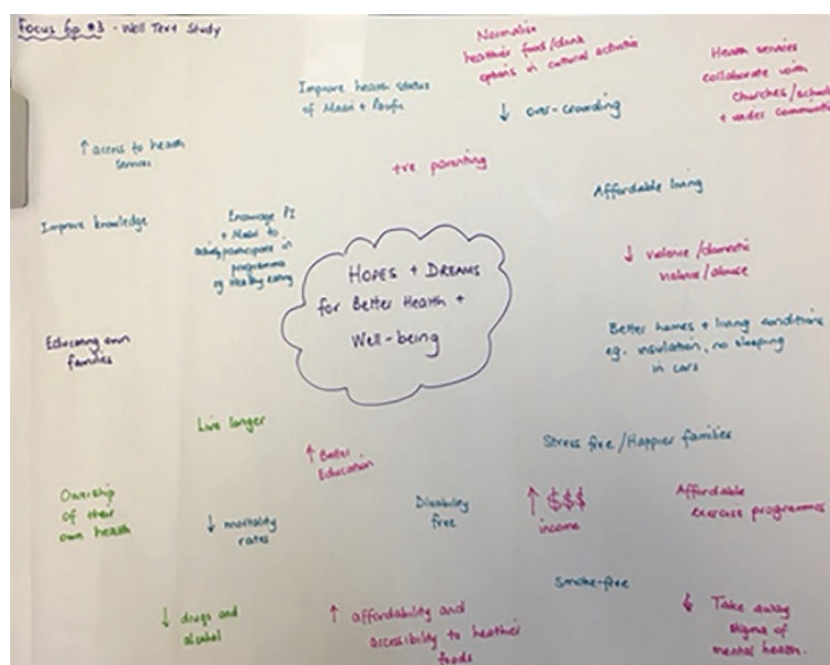 Focus Gp #3 - Well Text Study
Normalise
healthier food/drink
options in cultural activities
Health services
collaborate with
churches/schools
+ wider communities
Improve health status
of Maori + Pacific
↓ over-crowding
↑ access to health
services
+ve parenting
Affordable living
Improve knowledge
Encourage PI
+ Maori to
actively participate in
programmes
eg Healthy eating
HOPES + DREAMS
for Better Health +
Well-being
↓ violence/domestic
violence/abuse
Better homes + living conditions
eg. insulation, no sleeping
in cars
Educating own
families
Live longer
↑ Better
Education
Stress free/Happier families
Owership
of their
own health
↓ mortality
rates
Disability
free
↑ $$$
income
Affordable
exercise programmes
Smoke-free
↓ drugs and
alcohol
↑ affordability and
accessibility to healthier
foods
↓ Take away
stigma of
mental health.